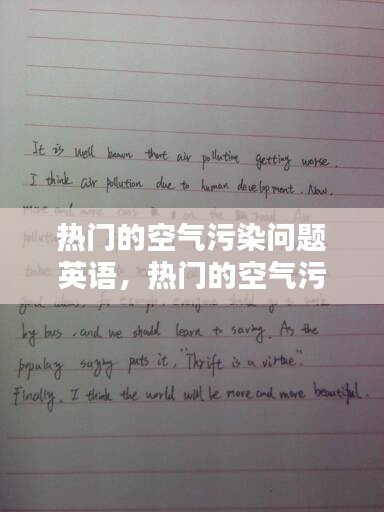 It is well known that air pollution getting worse.
I think air pollution due to human development. Now.
more and more cars on the road. Air
热门的空气污染问题
英语，热门的空气污
good ideas. for example, everyone should go to work
by bus, and we should learn to saving. As the
populay saying puts it, "Thrift is a virtue".
Finally. I think the world will be more and more beautiful.